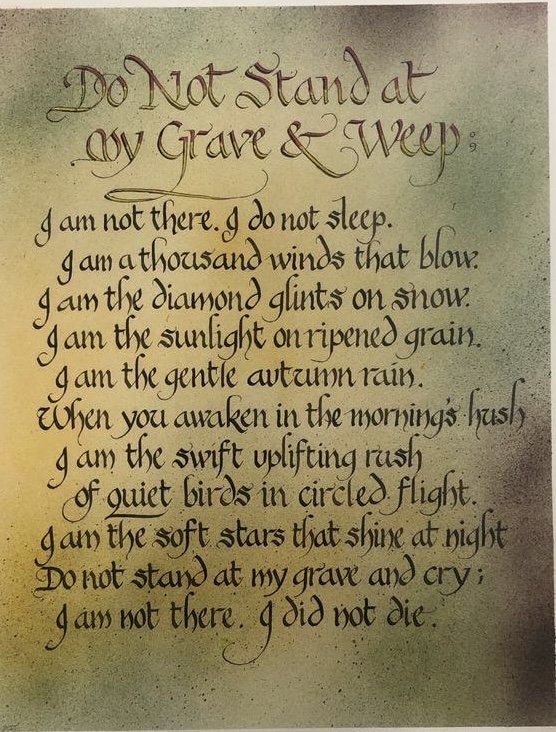 Do Not Stand at
my Grave & Weep;
I am not there. I do not sleep.
I am a thousand winds that blow.
I am the diamond glints on snow.
I am the sunlight on ripened grain.
I am the gentle autumn rain.
When you awaken in the morning's hush
I am the swift uplifting rush
of quiet birds in circled flight.
I am the soft stars that shine at night
Do not stand at my grave and cry;
I am not there. I did not die.